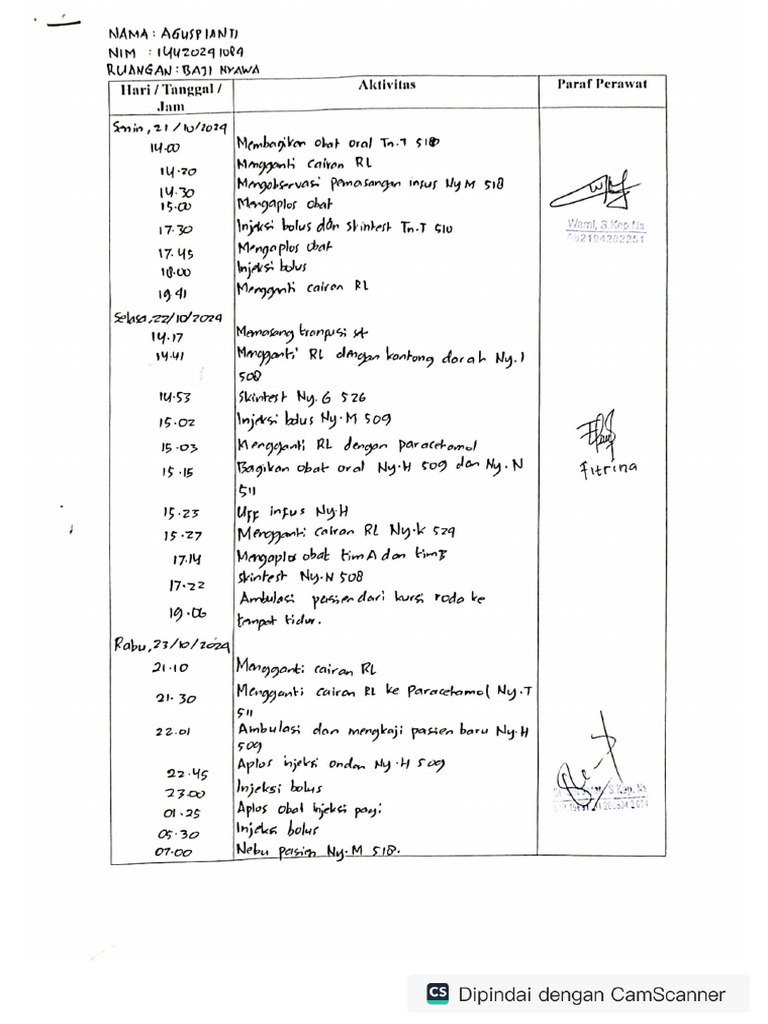 NAMA : AGUSPIANTI
NIM : 14420241089
RUANGAN : BAJI NYAWA
Hari / Tanggal / Jam Aktivitas Paraf Perawat
Senin, 21/10/2024
14.00 Membagikan obat oral Tn.T 510
14.20 Mengganti cairan RL
14.30 Mengobservasi pemasangan infus Ny M 518
15.00 Mengaplos obat
17.30 Injeksi bolus dan skintest Tn.T 510
17.45 Mengaplos obat
18.00 Injeksi bolus
19 41 Mengganti cairan RL
Wami, S.Kep.Ns
Selasa, 22/10/2024
14.17 Memasang tranfusi set
14.41 Mengganti RL dengan kantong darah Ny.I
508
14.53 Skintest Ny. G 526
15.02 Injeksi bolus Ny.M 509
15.03 Mengganti RL dengan paracetamol
15.15 Bagikan obat oral Ny.H 509 dan Ny.N
511
Fitrina
15.23 Uff infus Ny.H
15.27 Mengganti cairan RL Ny.K 529
17.14 Mengaplos obat tim A dan tim B
17.22 Skintest Ny.N 508
19.06 Ambulasi pasien dari kursi roda ke
tempat tidur.
Rabu, 23/10/2024
21.10 Mengganti cairan RL
21.30 Mengganti cairan RL ke Paracetamol Ny.T
511
22.01 Ambulasi dan mengkaji pasien baru Ny.H
509
22.45 Aplos injeksi ondan Ny.H 509
23.00 Injeksi bolus
01.25 Aplos obat injeksi pagi
05.30 Injeksi bolus
07.00 Nebu pasien Ny.M 518.
S.Kep, Ns
CS Dipindai dengan CamScanner